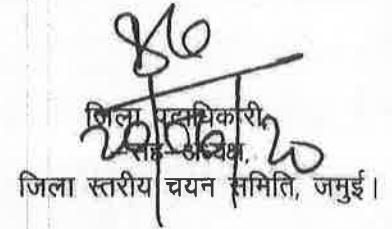 जिला पदाधिकारी,
-सह-अध्यक्ष,
जिला स्तरीय चयन समिति, जमुई।